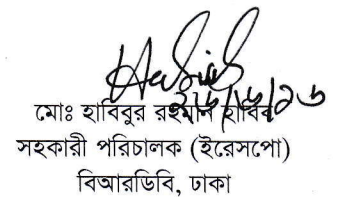 মোঃ হাবিবুর রহমান হাবিব
সহকারী পরিচালক (ইরেসপো)
বিআরডিবি, ঢাকা